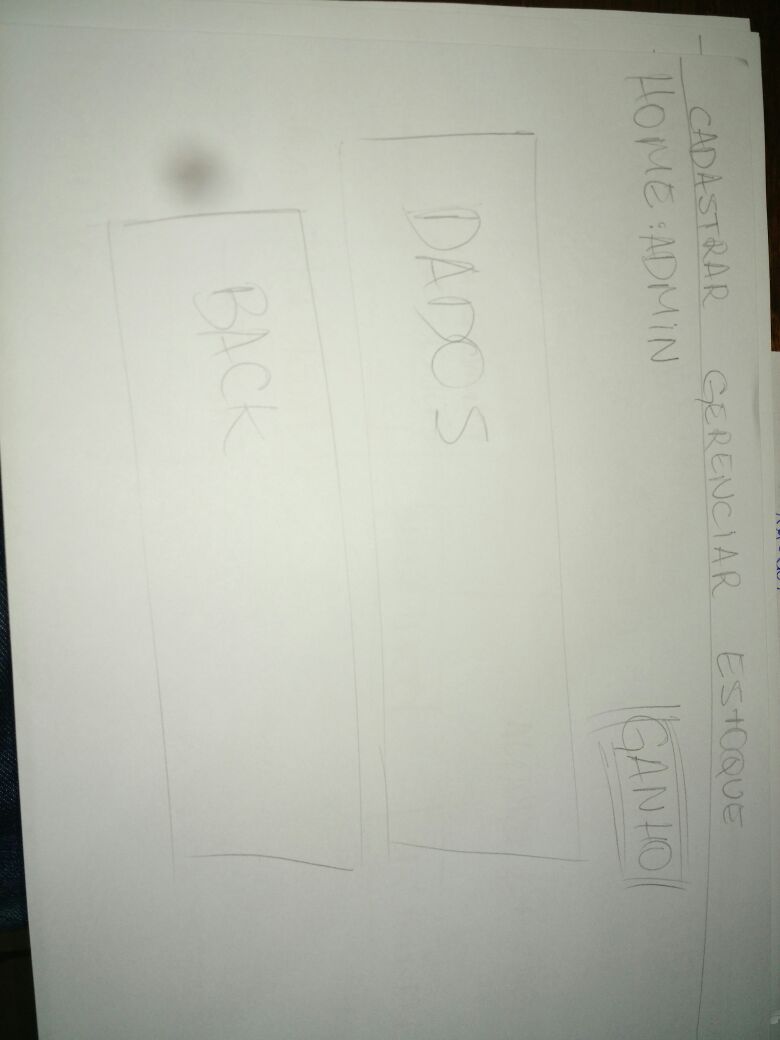 CADASTRAR GERENCIAR ESTOQUE
HOME:ADMIN
GANHO
DADOS
BACK